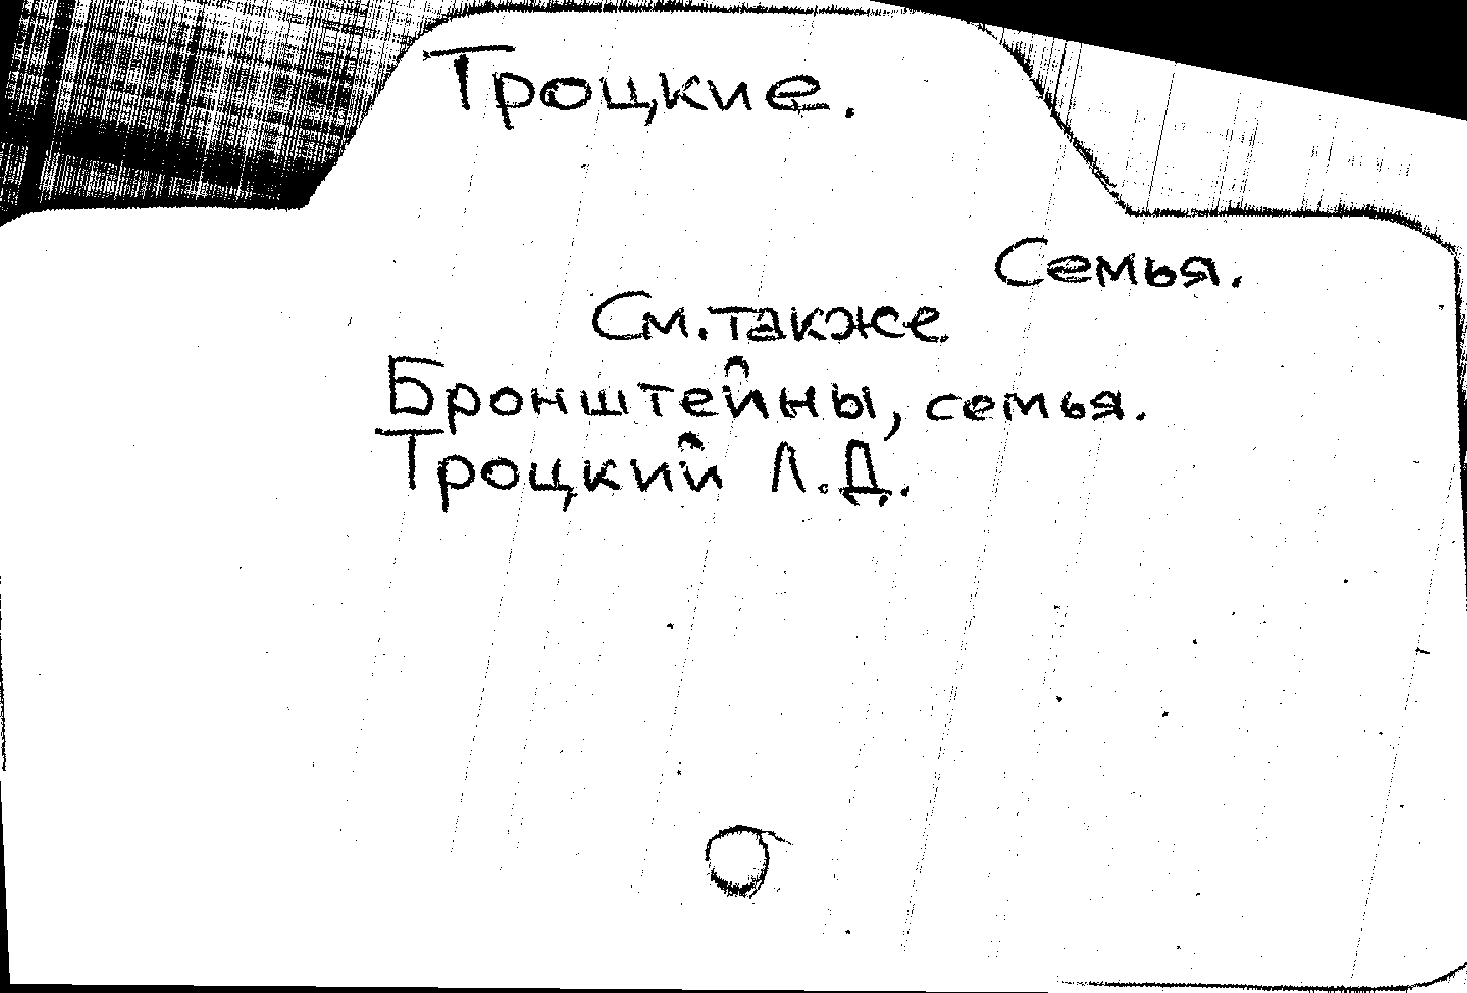 Троцкие.
Семья.
См. также
Бронштейны, семья.
Троцкий Л.Д.